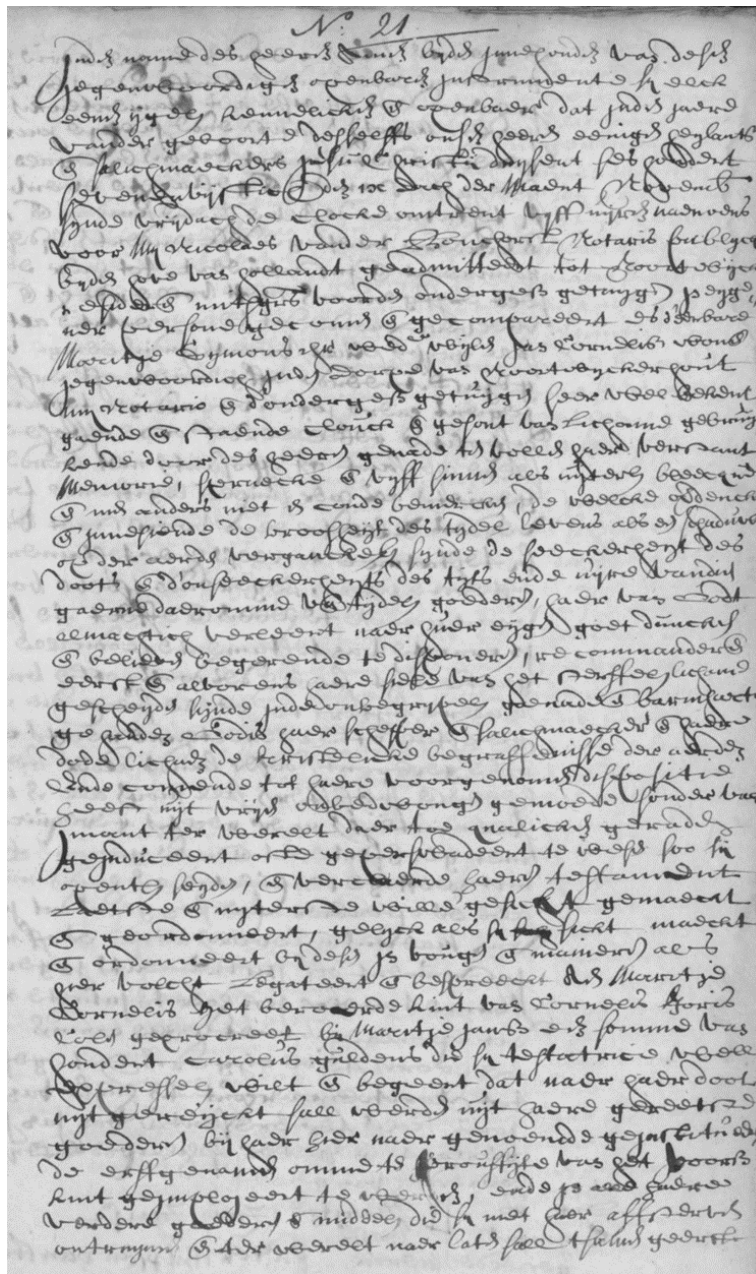 No: 21
Inden name des heeren Amen bijden innehouden van desen
jegenwoordigen openbaren instrumente sij elck
eenen ygelyck kennelicken & openbaer dat inden jaere
vander geboorte desselffs onsen heeren eenigen heylants
& salichmaeckers Jesu Christi duysent ses hondert
seven & vijftich den ix en dach der Maent Novemb
synde vrijdach de clocke omtrent vyff uyren naenoens
voor mij Nicolaes vander Bouchorst Notaris publycq
byden hove van hollandt geadmitteert tot Noortwyck
residerende & mitsgrs voorden ondergess getuygen in eyge
ner persone gecomen & gecompareert es d'eerbare
Maritje Symons dr wedue wylen Jan Cornelis wonen
jegenwoordich inden dorpe van Noortwyckerhout
mij Notario & d'ondergess getuygen seer wel bekent
gaende & staende clouck & gesont van lichame gebruy
kende door des heeren genade ten vollen haer verstant
Memorie, spraecke & vyff sinnen als uyterlyck bleecque
& men anders niet en conde bemercken, de welcke overdenck
& innesiende de broosheyt des tydel levens als een schaduwe
op der aerden verganckelyck synde de seeckerheyt des
doots & d'onseeckerheyts des tyts ende uyre vandien
gaerne daeromme van tydelycke goederen, haer van Godt
almachtich verleent naer haer eygen goet duncken
& believen begerende te disponeren, recommanderende
eerst & alvorens haere siele van het sterffelyck lichaem
gescheyden synde inde onbegrypelycke genade & barmhertic
ge handen Godts haer schepper & salichmaecker & haere
dode lichaem de kristelicke begraffenisse der aerden
Ende comende tot haere voorgenomen dispositie
heeft uyt vryen onbedwongen gemoede sonder van
imant ter werelt daer toe qualicken geraden
geinduceert ofte gepersuadeert te wesen soo sij
opentlyck seyde, & verclaerde haeren testament
Laetste & uyterste wille gesticht gemaect
& geordonneert, gelyck als sij sticht maeckt
& ordonneert bij desen in vougen & manieren als
hier volcht Legateert & bespreeckt aen Marritje
Cornelis het beroerde kint van Cornelis Joris
geprocreert bij Maritje Jans een somme van
hondert Carolus guldens die sij testatrice wel
expresselyck wilt & begeert dat naer haer doot
uyt gereyckt sall werden uyt haere gereetste
goederen bij haer hier naer genoemde geinstitueer
de erffgenamen omme ten prouffijte van het voors
kint geimployeert te werden, ende in alle haere
verdere goederen & middelen die sij met haer affsterven
ontruymen & ter werelt naer laten sall